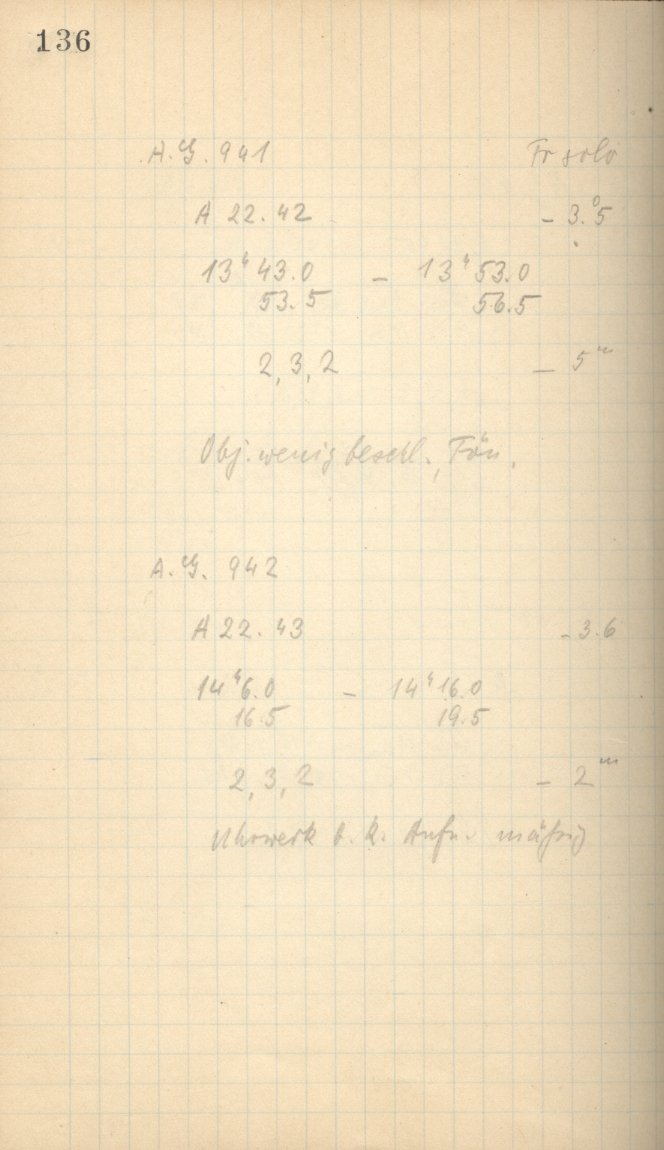 136
A.G. 941 Fr solo
A 22.42 - 3.°5
13ʰ 43.0 - 13ʰ 53.0
53.5 56.5
2, 3, 2 - 5ᵐ
Obj. wenig beschl., Fön.
A.G. 942
A 22.43 - 3.6
14ʰ 6.0 - 14ʰ 16.0
16.5 19.5
2, 3, 2 - 2ᵐ
Uhrwerk b. k. Aufn. mäßig